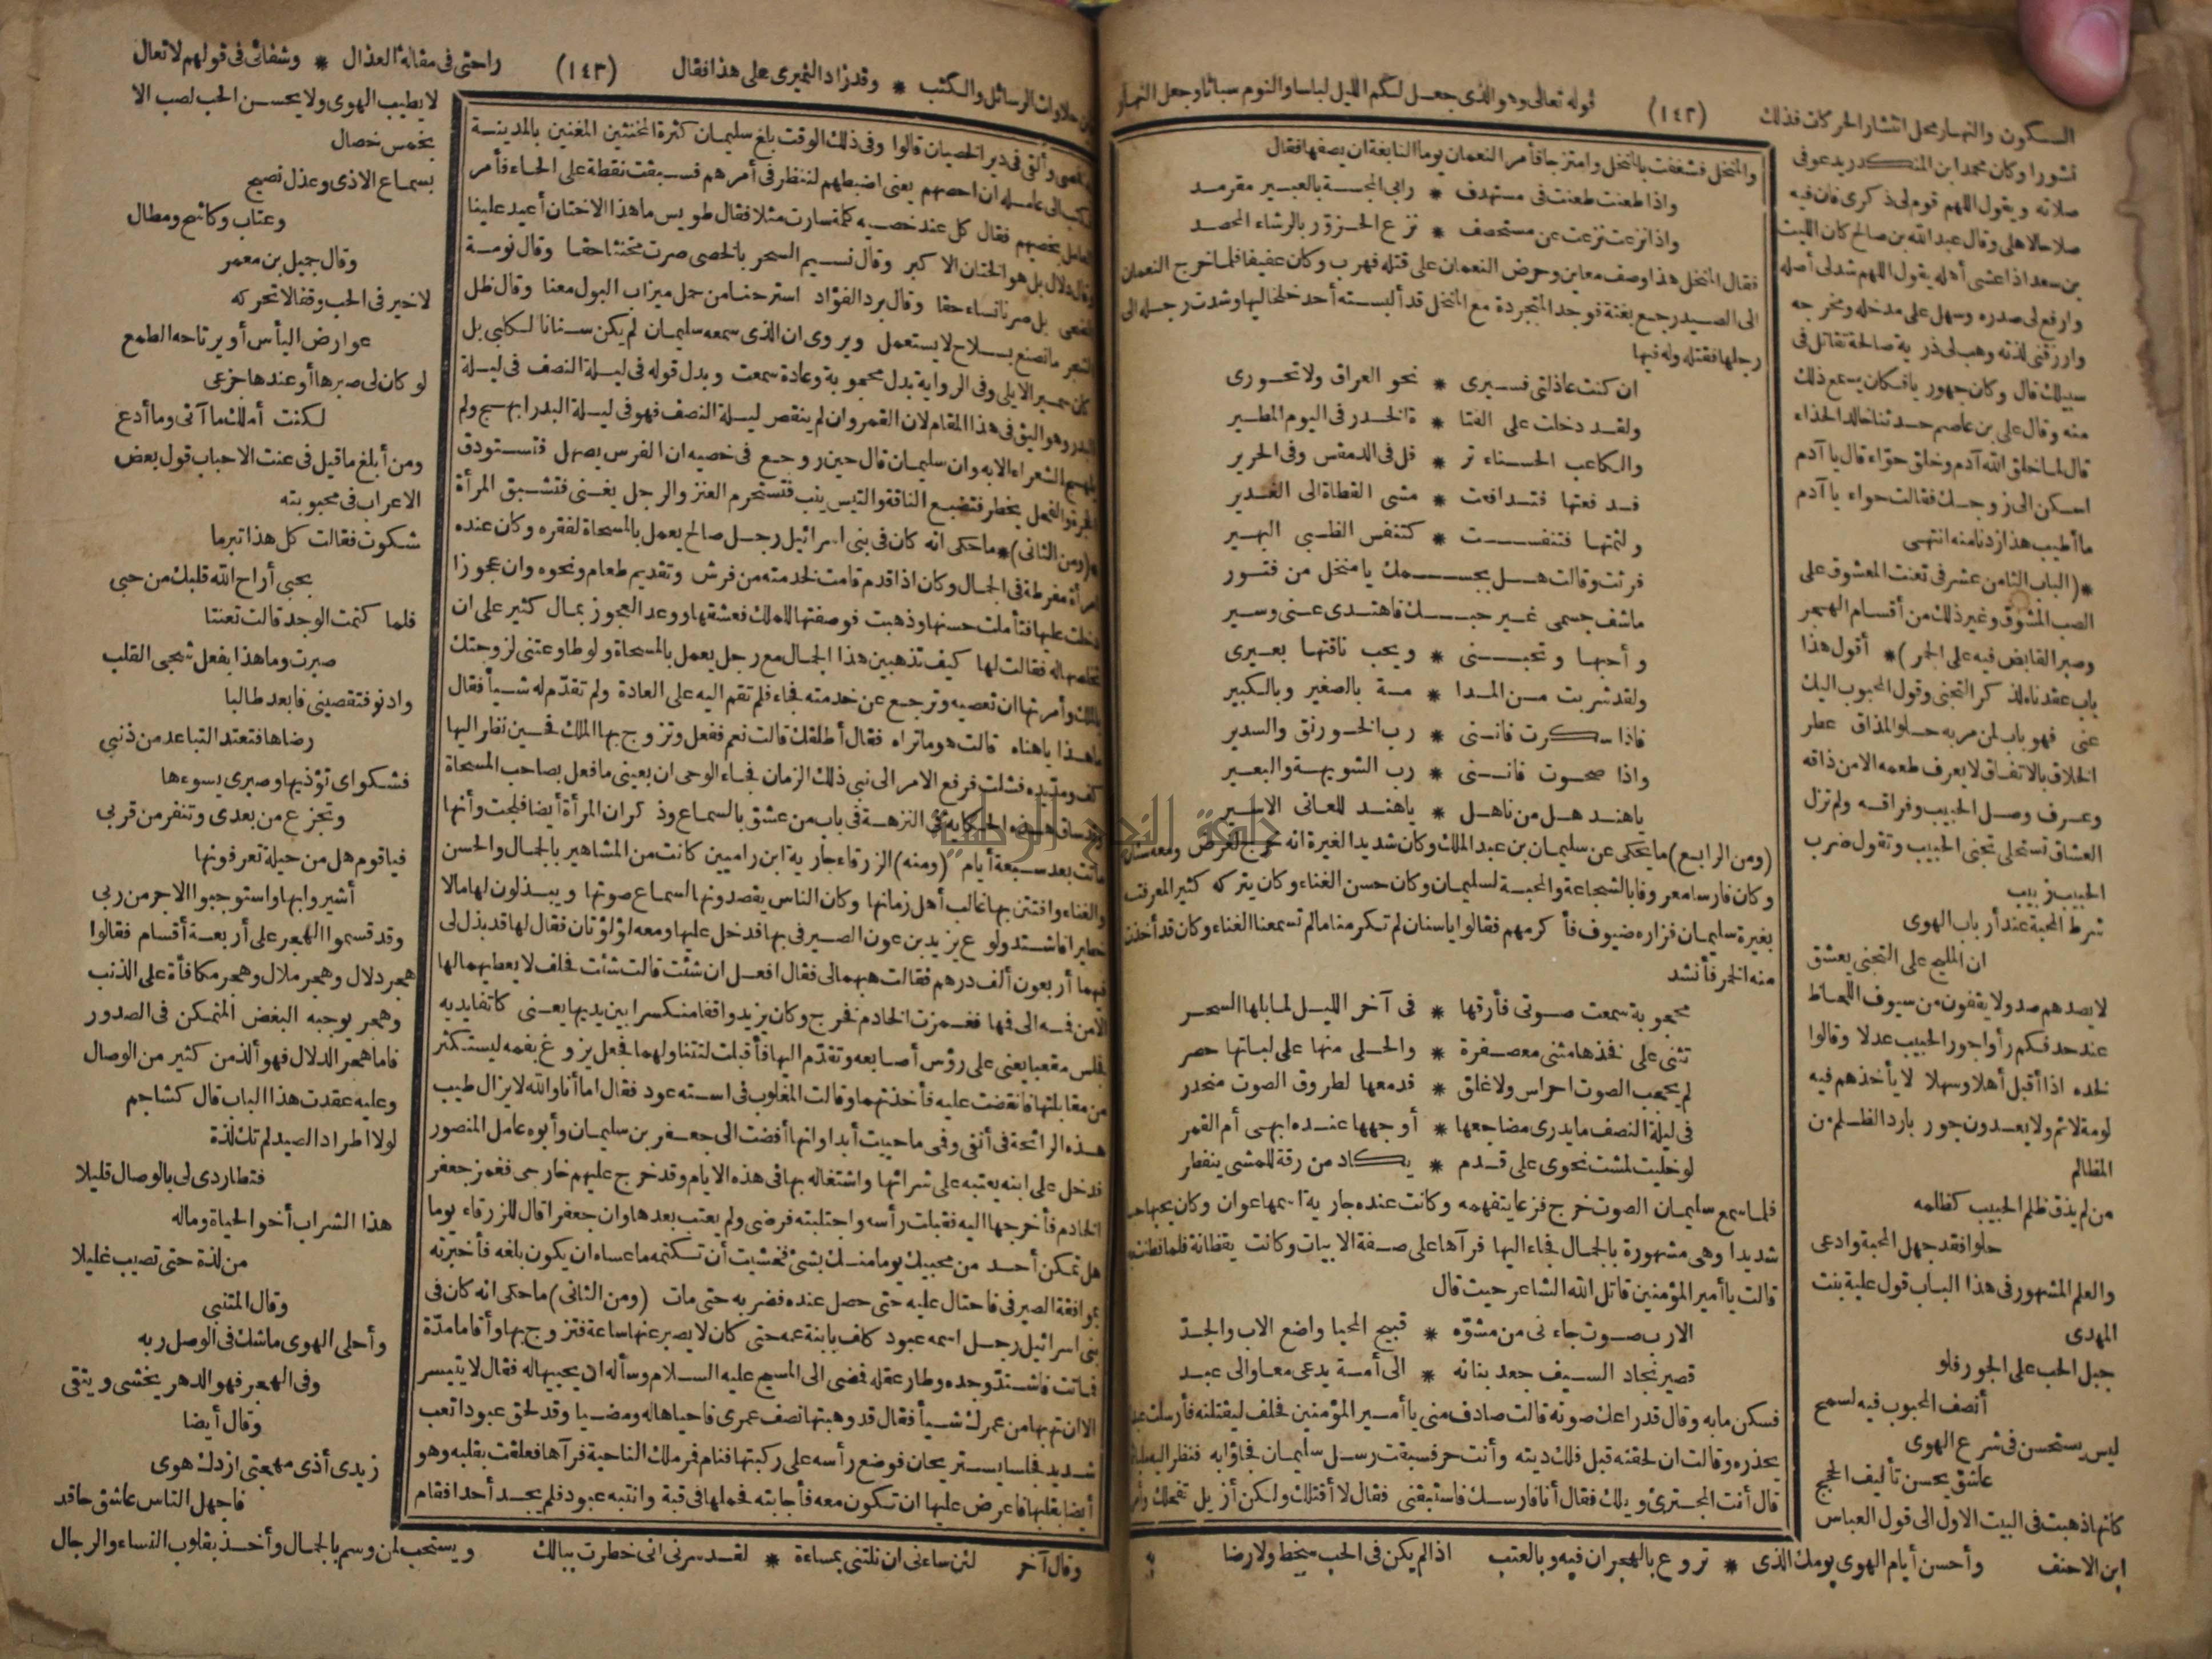 السكون والنهار محل انتشار الحركات فذلك (١٤٢) قوله تعالى وهو الذى جعل لكم الليل لباسا والنوم سباتا وجعل النهار
نشورا وكان محمد ابن المنكدر يدعو فى
صلاته ويقول اللهم قوم لى ذكرى فان فيه
صلاحا لاهلى وقال عبد الله بن صالح كان الليث
بن سعد اذا غشى أهله يقول اللهم شد لى أصله
وارفع لى صدره وسهل على مدخله ومخرجه
وارزقنى لذته وهب لى ذرية صالحة تقاتل فى
سبيلك قال وكان جهور يا فكان يسمع ذلك
منه وقال على بن عاصم حدثنا خالد الحذاء
قال لما خلق الله آدم وخلق حواء قال يا آدم
اسكن الى زوجك فقالت حواء يا آدم
ما أطيب هذا زدنا منه انتهى
*(الباب الثامن عشر فى تعنت المعشوق على
الصب المشوق وغير ذلك من أقسام الهجر
وصبر القابض فيه على الجمر)* أقول هذا
باب عقدناه لذكر التجنى وقول المحبوب اليك
عنى فهو باب لمن مر به حلو المذاق عطر
الخلاق بالاتفاق لا يعرف طعمه الا من ذاقه
وعرف وصل الحبيب وفراقه ولم تزل
العشاق تستحلى تجنى الحبيب وتقول ضرب
الحبيب زبيب
شرط المحبة عند أرباب الهوى
ان المليح على التجنى يعشق
لا يصدهم صد ولا يقفون من سيوف اللحاظ
عند حد فكم رأوا جور الحبيب عدلا وقالوا
لخده اذا أقبل أهلا وسهلا لا يأخذهم فيه
لومة لائم ولا يعدون جور بارد الظلم من
المظالم
من لم يذق ظلم الحبيب كظلمه
حلوا فقد جهل المحبة وادعى
والعلم المشهور فى هذا الباب قول علية بنت
المهدى
جبل الحب على الجور فلو
أنصف المحبوب فيه لسمج
ليس يستحسن فى شرع الهوى
عاشق يحسن تأليف الحجج
كانها ذهبت فى البيت الاول الى قول العباس
ابن الاحنف وأحسن أيام الهوى يومك الذى * تروع بالهجران فيه وبالعتب اذا لم يكن فى الحب سخط ولا رضا
والمنخل فشغفت بالمنخل وامتزجا فأمر النعمان يوما النابغة ان يصفها فقال
واذا طعنت طعنت فى مستهدف * رابى المجسة بالعبير مقرمد
واذا نزعت نزعت عن مستحصف * نزع الحزور بالرشاء المحصد
فقال المنخل هذا وصف معاين وحرض النعمان على قتله فهرب وكان عفيفا فلما خرج النعمان
الى الصيد رجع بغتة فوجد المتجردة مع المنخل قد ألبسته أحد خلخاليها وشدت رجله الى
رجلها فقتله وله فيها
ان كنت عاذلتى فسيرى * نحو العراق ولا تحورى
ولقد دخلت على الفتا * ة الخدر فى اليوم المطير
والكاعب الحسناء تر * فل فى الدمقس وفى الحرير
فدفعتها فتدافعت * مشى القطاة الى الغدير
ولثمتها فتنفست * كتنفس الظبى البهير
فرثت وقالت هل بجسمك يا منخل من فتور
ما شف جسمى غير حبك فاهتدى عنى وسير
وأحبها وتحبنى * ويحب ناقتها بعيرى
ولقد شربت من المدا * مة بالصغير وبالكبير
فاذا سكرت فاننى * رب الخورنق والسدير
واذا صحوت فاننى * رب الشويهة والبعير
يا هند هل من ناهل * يا هند للعانى الاسير
(ومن الرابع) ما يحكى عن سليمان بن عبد الملك وكان شديد الغيرة انه خرج لغرض ومعه سنان
وكان فارسا معروفا بالشجاعة والمحبة لسليمان وكان حسن الغناء وكان يتركه كثير المعرفته
بغيرة سليمان فزاره ضيوف فأكرمهم فقالوا يا سنان لم تكرمنا ما لم تسمعنا الغناء وكان قد أخذت
منه الخمر فأنشد
محجوبة سمعت صوتى فأرقها * فى آخر الليل لما بلها السحر
تثنى على فخذها مثنى معصفرة * والحلى منها على لباتها حصر
لم يحجب الصوت احراس ولا غلق * فدمعها لطروق الصوت منحدر
فى ليلة النصف ما يدرى مضاجعها * أوجهها عنده ابهى أم القمر
لو خليت لمشت نحوى على قدم * يكاد من رقة للمشى ينفطر
فلما سمع سليمان الصوت خرج فزعا يتفهمه وكانت عنده جارية اسمها عوان وكان يحبها حبا
شديدا وهى مشهورة بالجمال فجاء اليها فرآها على صفة الابيات وكانت يقظانة فلما فطنت به
قالت يا أمير المؤمنين قاتل الله الشاعر حيث قال
الا رب صوت جاءنى من مشوه * قبيح المحيا واضع الاب والجد
قصير نجاد السيف جعد بنانه * الى أمة يدعى معا والى عبد
فسكن ما به وقال قد راعك صوته قالت صادف منى يا أمير المؤمنين فحلف ليقتلنه فأرسلت عبدا
يحذره وقالت ان لحقته قبل فلك ديته وأنت حر فسبقت رسل سليمان فجاؤا به فنظر اليه مليا
قال أنت المجترئ ويلك فقال أنا فارسك فاستبقنى فقال لا أقتلك ولكن أزيل تفحلك وأمر
من حلاوات الرسائل والكتب * وقد زاد النميرى على هذا فقال (١٤٣) راحتى فى مقالة العذال * وشفائى فى قولهم لا تعال
وألقى فى دير الخصيان قالوا وفى ذلك الوقت بلغ سليمان كثرة المخنثين المغنين بالمدينة
فكتب الى عامله ان احصهم يعنى اضبطهم لننظر فى أمرهم فسبقت نقطة على الحاء فأمر
العامل بخصيهم فقال كل عند خصيه كلمة سارت مثلا فقال طويس ما هذا الا ختان أعيد علينا
وقال دلال بل هو الختان الاكبر وقال نسيم السحر بالخصى صرت مخنثا حقا وقال نومة
الضحى بل صرنا نساء حقا وقال برد الفؤاد استرحنا من حمل ميزاب البول معنا وقال ظل
الشجر ما نصنع بسلاح لا يستعمل ويروى ان الذى سمعه سليمان لم يكن سنانا الكلبى بل
كان سمير الايلى وفى الرواية بدل محجوبة وغادة سمعت وبدل قوله فى ليلة النصف فى ليلة
البدر وهو اليق فى هذا المقام لان القمر وان لم ينقص ليلة النصف فهو فى ليلة البدر ابهج ولم
يلهج الشعراء الا به وان سليمان قال حين روجع فى خصيه ان الفرس يصهل فتستودق
الحجرة والفحل يخطر فتضبع الناقة والتيس ينب فتستحرم العنز والرجل يغنى فتشبق المرأة
*(ومن الثانى)* ما حكى انه كان فى بنى اسرائيل رجل صالح يعمل بالمسحاة لفقره وكان عنده
امرأة مفرطة فى الجمال وكان اذا قدم قامت لخدمته من فرش وتقديم طعام ونحوه وان عجوزا
دخلت عليها فتأملت حسنها وذهبت فوصفتها للملك فعشقها ووعد العجوز بمال كثير على ان
تخلصها له فقالت لها كيف تذهبين هذا الجمال مع رجل يعمل بالمسحاة ولو طاوعتنى لزوجتك
بالملك وأمرتها ان تعصيه وترجع عن خدمته فجاء فلم تقم اليه على العادة ولم تقدم له شيأ فقال
ما هذا يا هناه قالت هو ما تراه فقال أطلقك قالت نعم ففعل وتزوج بها الملك فحين نظر اليها
كف ومد يده فشلت فرفع الامر الى نبى ذلك الزمان فجاء الوحى ان بعينى ما فعل بصاحب المسحاة
وقد ساق هذه الحكاية فى النزهة فى باب من عشق بالسماع وذكر ان المرأة أيضا فلجت وأنها
ماتت بعد سبعة أيام (ومنه) الزرقاء جارية ابن رامين كانت من المشاهير بالجمال والحسن
والغناء وافتتن بها غالب أهل زمانها وكان الناس يقصدونها لسماع صوتها ويبذلون لها مالا
فاشتد ولوع يزيد بن عون الصيرفى بها فدخل عليها ومعه لؤلؤتان فقال لها قد بذل لى
فيهما أربعون ألف درهم فقالت هبهما لى فقال افعل ان شئت قالت شئت فحلف لا يعطيهما لها
الا من فيه الى فيها فغمزت الخادم فخرج وكان يزيد واقفا منكسرا بين يديها يعنى كاتفا يديه
فجلس مقعيا يعنى على رؤس أصابعه وتقدم اليها فأقبلت لتتناولهما فجعل يزوغ بفمه ليستكثر
من مقابلتها فانقضت عليه فأخذتهما وقالت المغلوب فى استه عود فقال اما أنا والله لا يزال طيب
هذه الرائحة فى أنفى وفمى ما حييت أبدا وانها أفضت الى جعفر بن سليمان وأبوه عامل المنصور
فدخل على ابنه يعتبه على شرائها واشتغاله بها فى هذه الايام وقد خرج عليهم خارجى فغمز جعفر
الخادم فأخرجها اليه فقبلت رأسه واجتلبته فرضى ولم يعتب بعدها وان جعفرا قال للزرقاء يوما
هل تمكن أحد من محبيك يوما منك بشئ فخشيت أن تكتمه ما عساه ان يكون بلغه فأخبرته
بموافقة الصيرفى فاحتال عليه حتى حصل عنده فضربه حتى مات (ومن الثانى) ما حكى انه كان فى
بنى اسرائيل رجل اسمه عبود كلف بابنة عمه حتى كان لا يصبر عنها ساعة فتزوج بها وأقاما مدة
فماتت فاشتد وجده وطار عقله فمضى الى المسيح عليه السلام وسأله ان يحييها له فقال لا يتيسر
الا ان تهبها من عمرك شيأ فقال قد وهبتها نصف عمرى فاحياها له ومضيا وقد لحق عبودا تعب
شديد فجلسا يستريحان فوضع رأسه على ركبتها فنام فمر ملك الناحية فرآها فعلقت بقلبه وهو
أيضا بقلبها فاعرض عليها ان تكون معه فأجابته فحملها فى قبة وانتبه عبود فلم يجد أحدا فقام
لا يطيب الهوى ولا يحسن الحب لصب الا
بخمس خصال
بسماع الاذى وعذل نصيح
وعتاب وكاشح ومطال
وقال جميل بن معمر
لا خير فى الحب وقفا لا تحركه
عوارض اليأس أو يرتاحه الطمع
لو كان لى صبرها أو عندها جزعى
لكنت أملك ما آتى وما أدع
ومن أبلغ ما قيل فى عنت الاحباب قول بعض
الاعراب فى محبوبته
شكوت فقالت كل هذا تبرما
بحبى أراح الله قلبك من حبى
فلما كتمت الوجد قالت تعنتا
صبرت وما هذا بفعل شجى القلب
وادنو فتقصينى فابعد طالبا
رضاها فتعتد التباعد من ذنبى
فشكواى تؤذيها وصبرى يسوءها
وتجزع من بعدى وتنفر من قربى
فيا قوم هل من حيلة تعرفونها
أشيروا بها واستوجبوا الاجر من ربى
وقد قسموا الهجر على أربعة أقسام فقالوا
هجر دلال وهجر ملال وهجر مكافأة على الذنب
وهجر يوجبه البغض المتمكن فى الصدور
فاما هجر الدلال فهو ألذ من كثير من الوصال
وعليه عقدت هذا الباب قال كشاجم
لولا اطراد الصيد لم تك لذة
فتطاردى لى بالوصال قليلا
هذا الشراب أخو الحياة وماله
من لذة حتى تصيب غليلا
وقال المتنبى
وأحلى الهوى ما شك فى الوصل ربه
وفى الهجر فهو الدهر يخشى ويتقى
وقال أيضا
زيدى أذى مهجتى ازدك هوى
فاجهل الناس عاشق حاقد
وقال آخر لئن ساءنى ان نلتنى بمساءة * لقد سرنى انى خطرت ببالك ويستحب لمن وسم بالجمال وأخذ بقلوب النساء والرجال
جامعة النجاح الوطنية